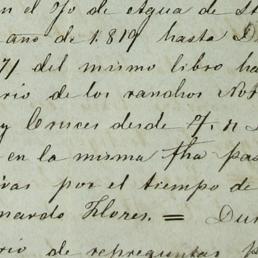 en el Jo de Agua de S
año de 1.819 hasta D
71 del mismo libro ha
rio de los ranchos No
y Cruces desde
en la misma fha pas
ivas por el tiempo de
nardo Flores. = Du
rio de repreguntas p